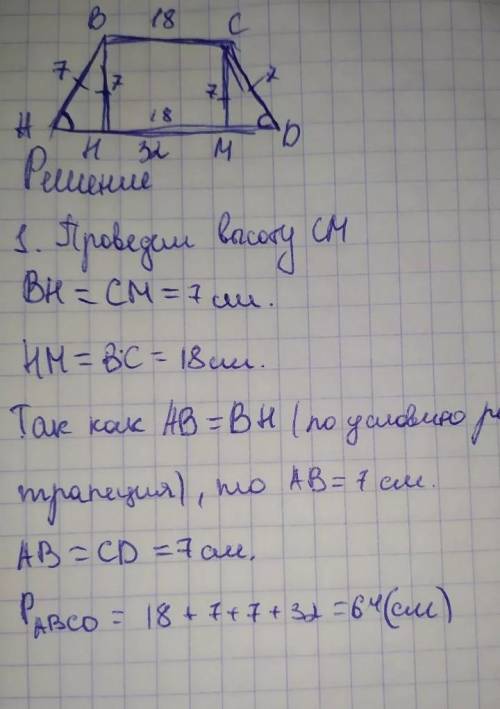 B 18 C
7 7 7 7
A H 18 M D
32
Решение
1. Проведем высоту CM
BH = CM = 7 см.
HM = BC = 18 см.
Так как AB = BH (по условию
трапеция), то AB = 7 см.
AB = CD = 7 см.
PABCD = 18 + 7 + 7 + 32 = 64 (см)